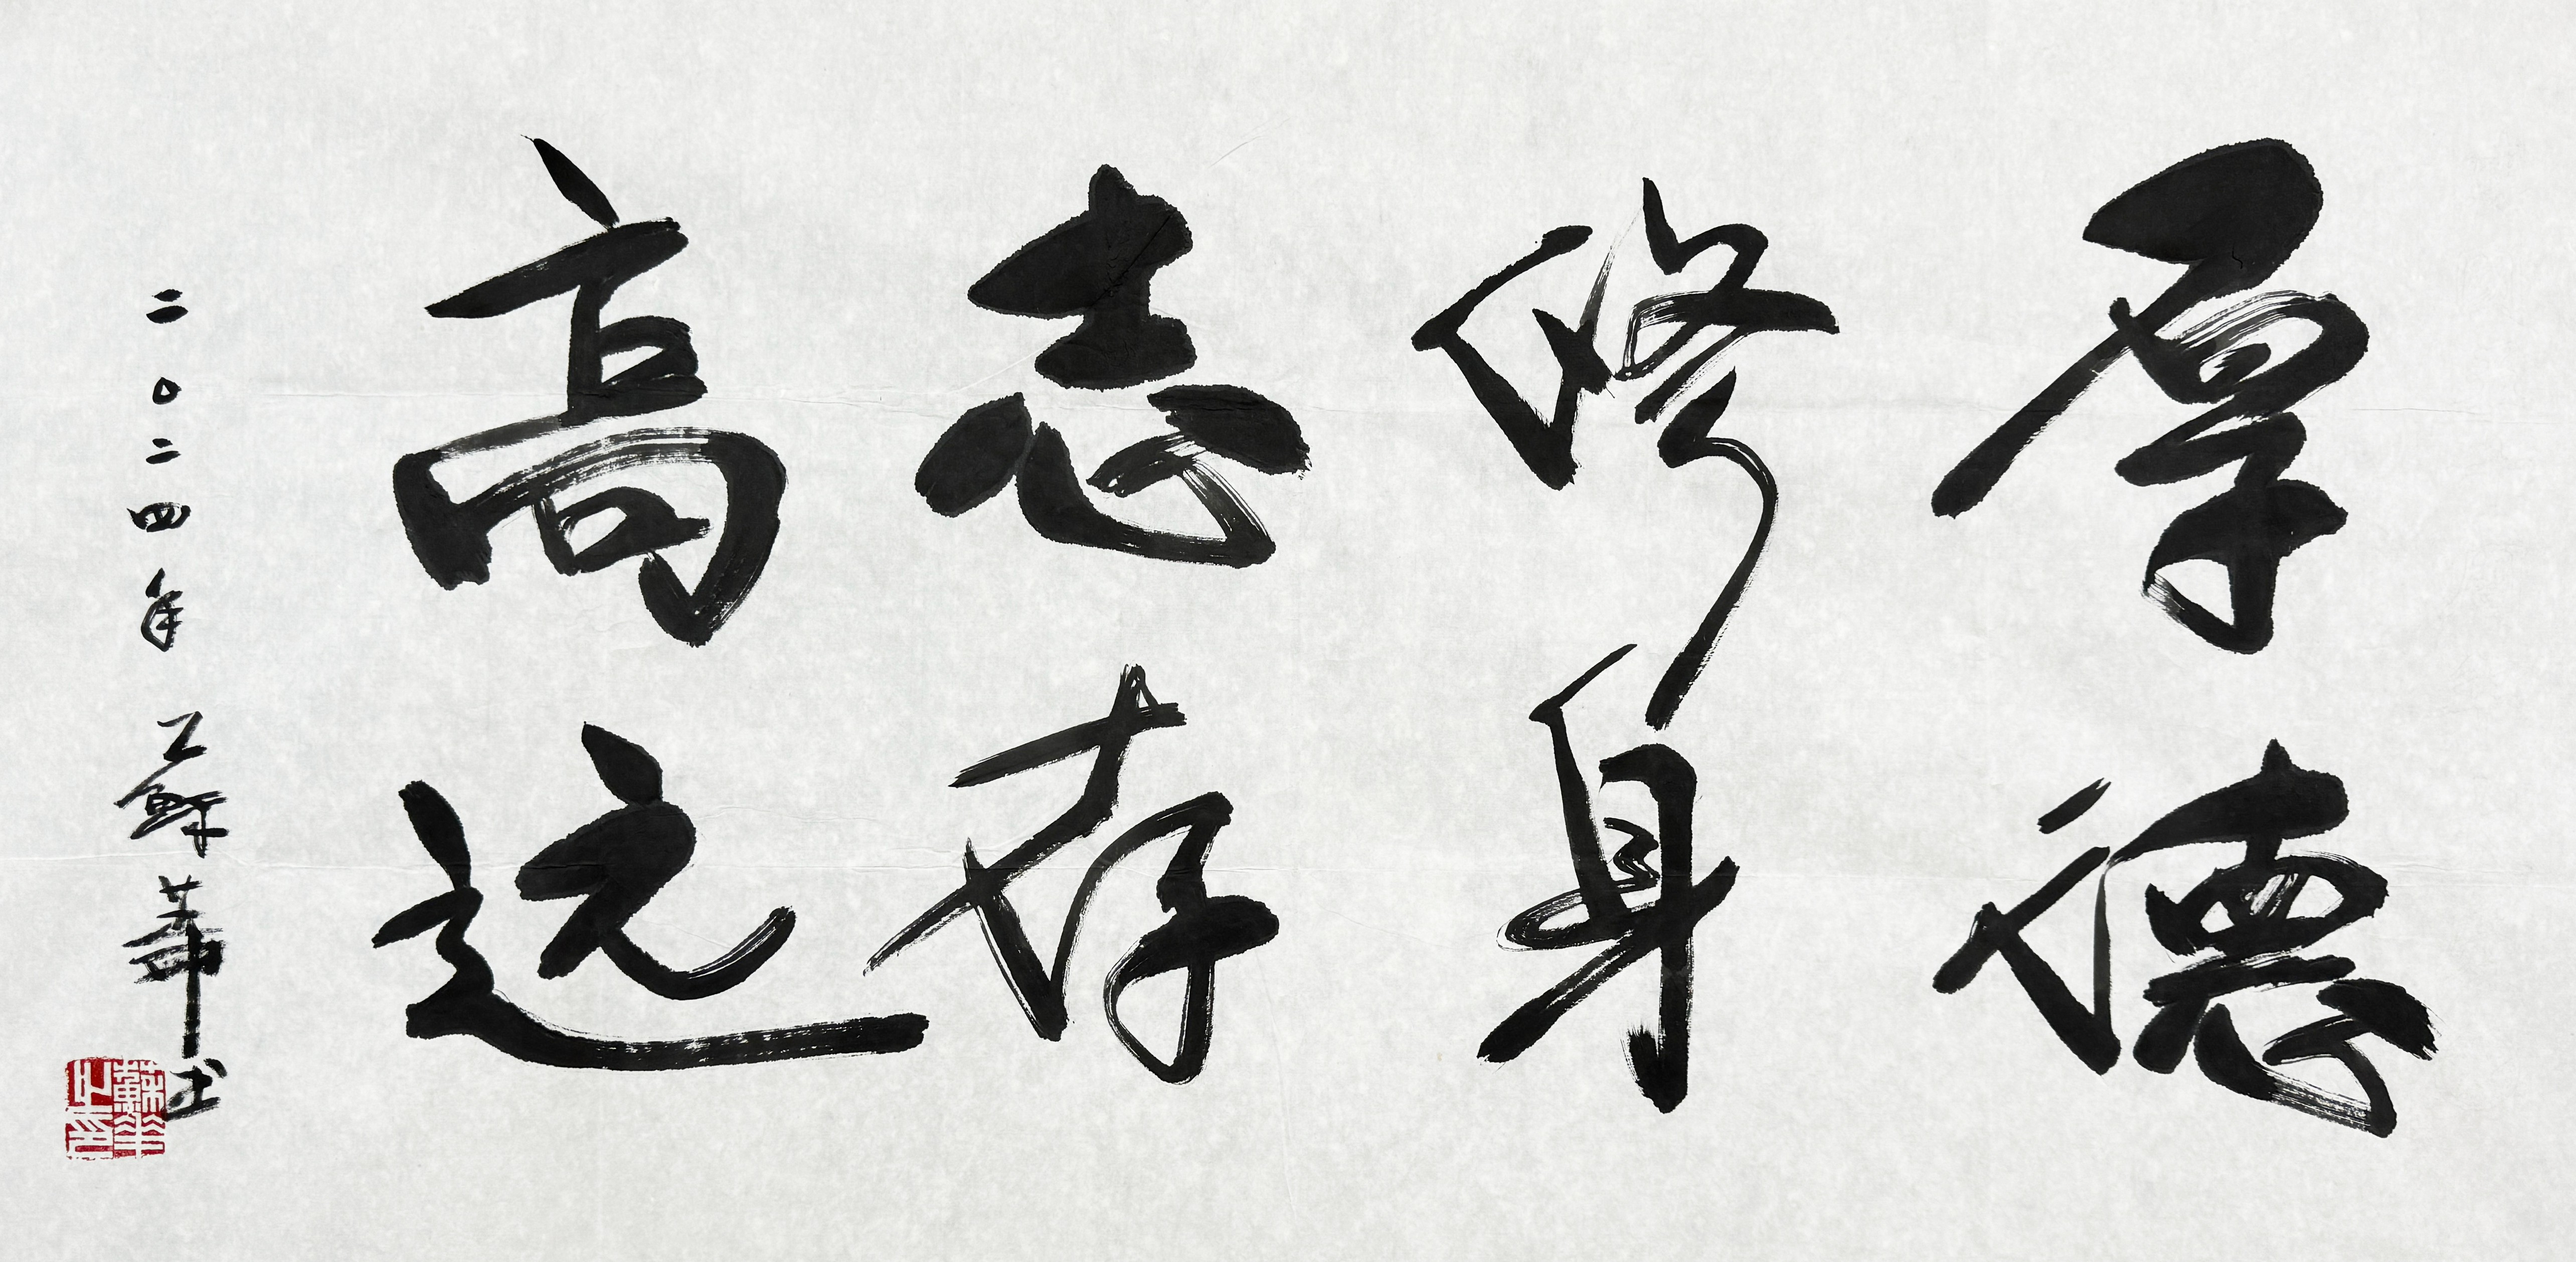 厚德
修身
志存
高远
二〇二四年
蘇華书